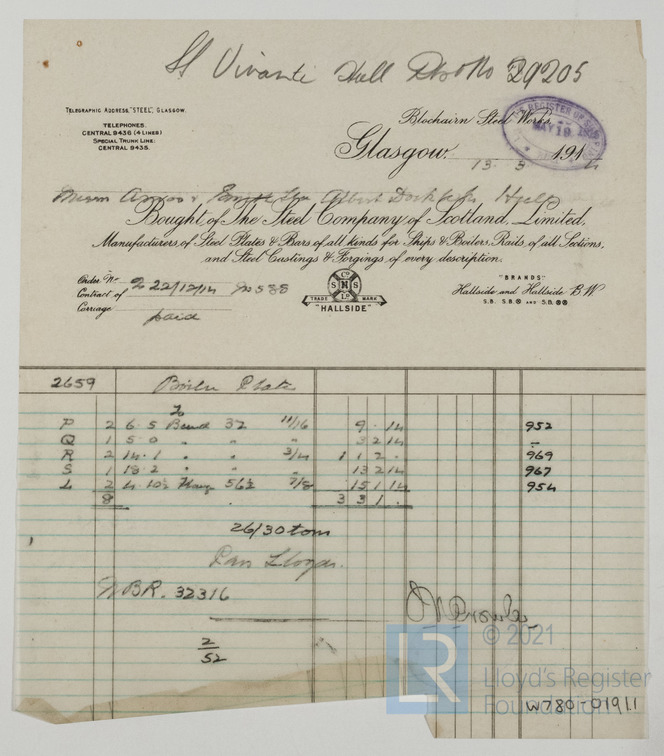 SS Vivanti Hull Rpt No 29205
TELEGRAPHIC ADDRESS, "STEEL", GLASGOW.
TELEPHONES.
CENTRAL 9436 (4 LINES)
SPECIAL TRUNK LINE:
CENTRAL 9435.
Blochairn Steel Works,
Glasgow, 191
MAY 19
Messrs Amos & Smith Albert Dock Hull
Bought of The Steel Company of Scotland, Limited,
Manufacturers of Steel Plates & Bars of all kinds for Ships & Boilers, Rails of all Sections,
and Steel Castings & Forgings of every description.
Order No
Contract of 22/12/14 No 588
Carriage paid
Co
S N S
LD
TRADE MARK
"HALLSIDE"
"BRANDS"
Hallside and Hallside B.W
S.B. S.B. AND S.B.
2659 Boiler Plate
To
P 2 6.5 32 11/16 9 . 14 952
Q 1 5.0 " " " 3 2 14 -
R 2 14.1 " " 3/4 1 1 2 . 969
S 1 18.2 " " " 13 2 14 967
L 2 4.10½ 56½ 7/8 15 1 14 954
8 3 3 1 .
26/30 tons
Pass Lloyds.
BR. 32316
2
52
© 2021
LR
Lloyd's Register
Foundation
W780-0191.1